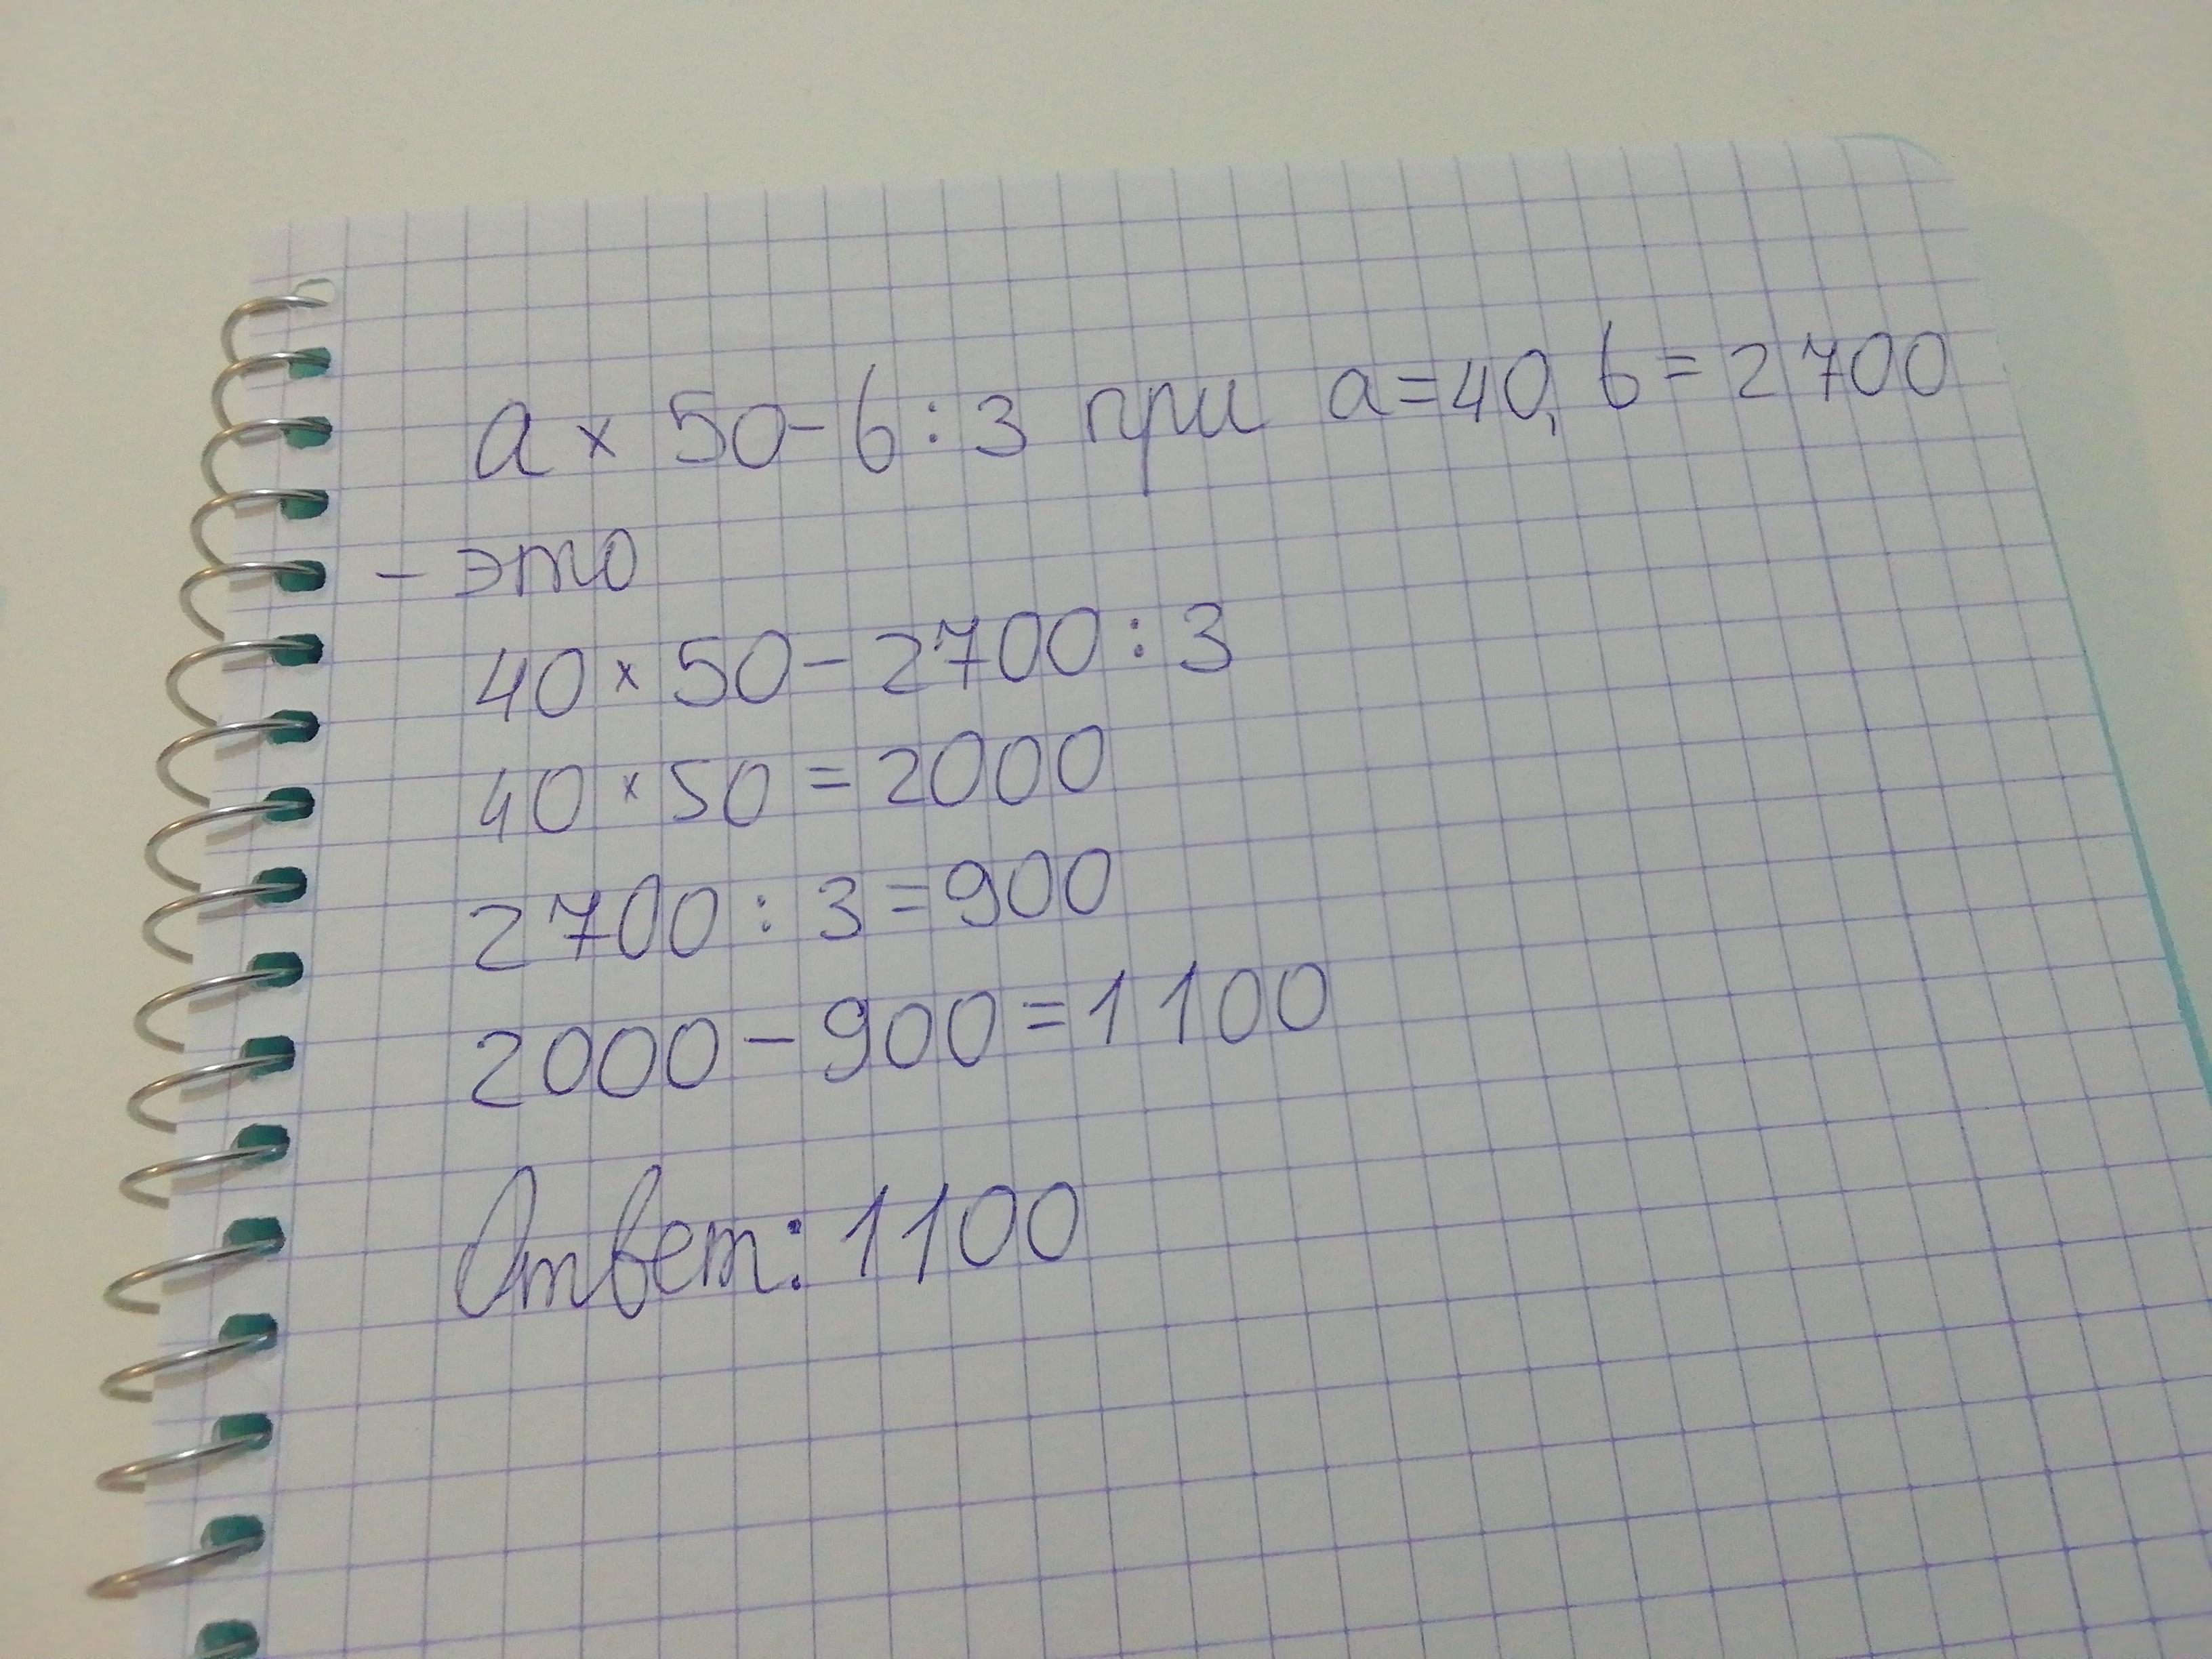 a × 50 - b : 3 при a = 40, b = 2700
- это
40 × 50 - 2700 : 3
40 × 50 = 2000
2700 : 3 = 900
2000 - 900 = 1100
Ответ: 1100